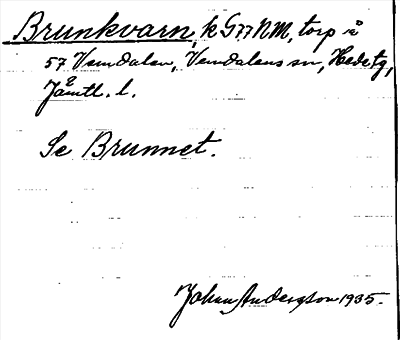 Brunkvarn, k G77NM, torp i
57 Vemdalen, Vemdalens sn, Hede tg,
Jämtl. l.
Se Brunnet.
Johan Anderson 1935.